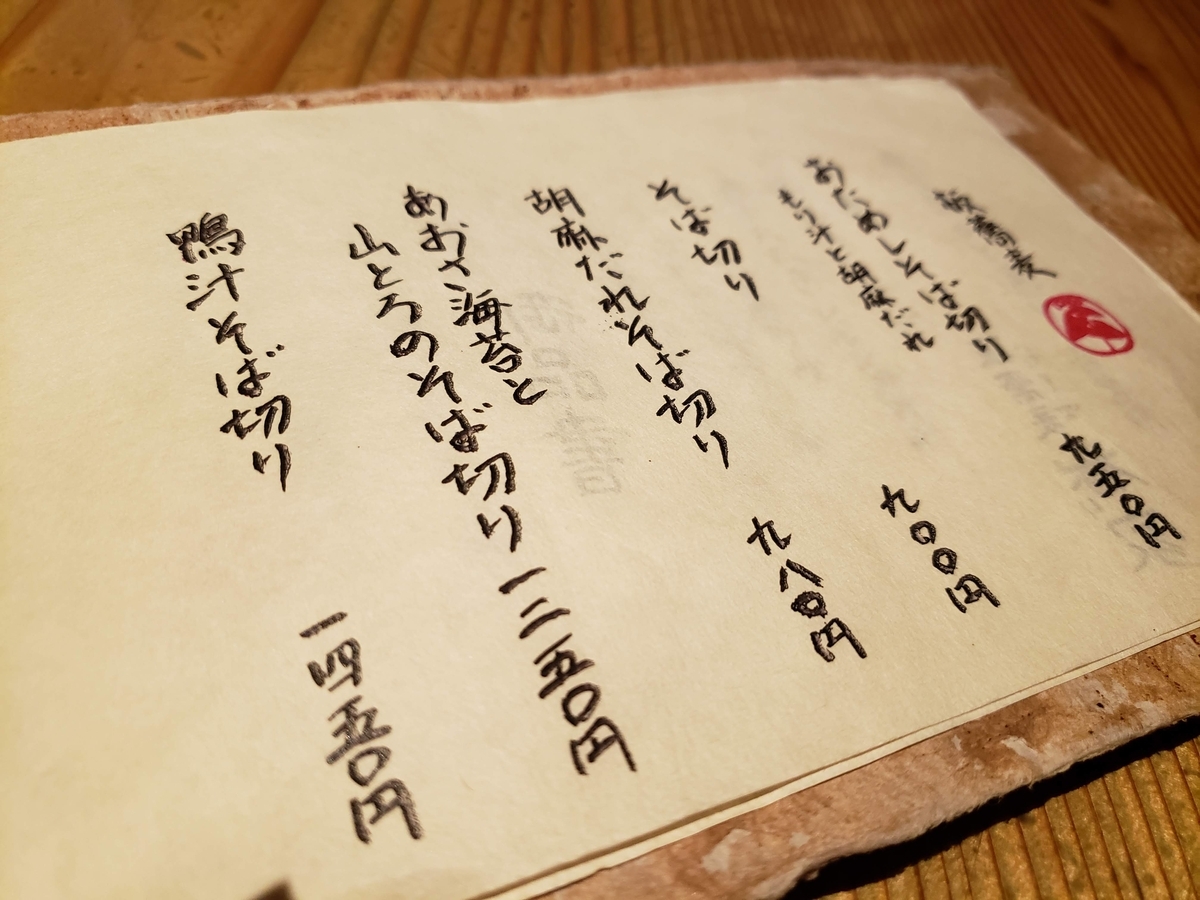 蕎麦
おためしそば切り 九五〇円
もり汁と胡麻だれ
そば切り 九〇〇円
胡麻だれそば切り 九八〇円
あおさ海苔と
山とろのそば切り 一二五〇円
鴨汁そば切り 一四五〇円